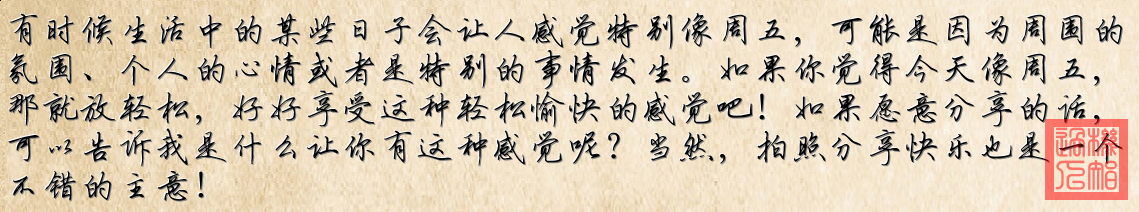 有时候生活中的某些日子会让人感觉特别像周五，可能是因为周围的
氛围、个人的心情或者是特别的事情发生。如果你觉得今天像周五，
那就放轻松，好好享受这种轻松愉快的感觉吧！如果愿意分享的话，
可以告诉我是什么让你有这种感觉呢？当然，拍照分享快乐也是一个
不错的主意！